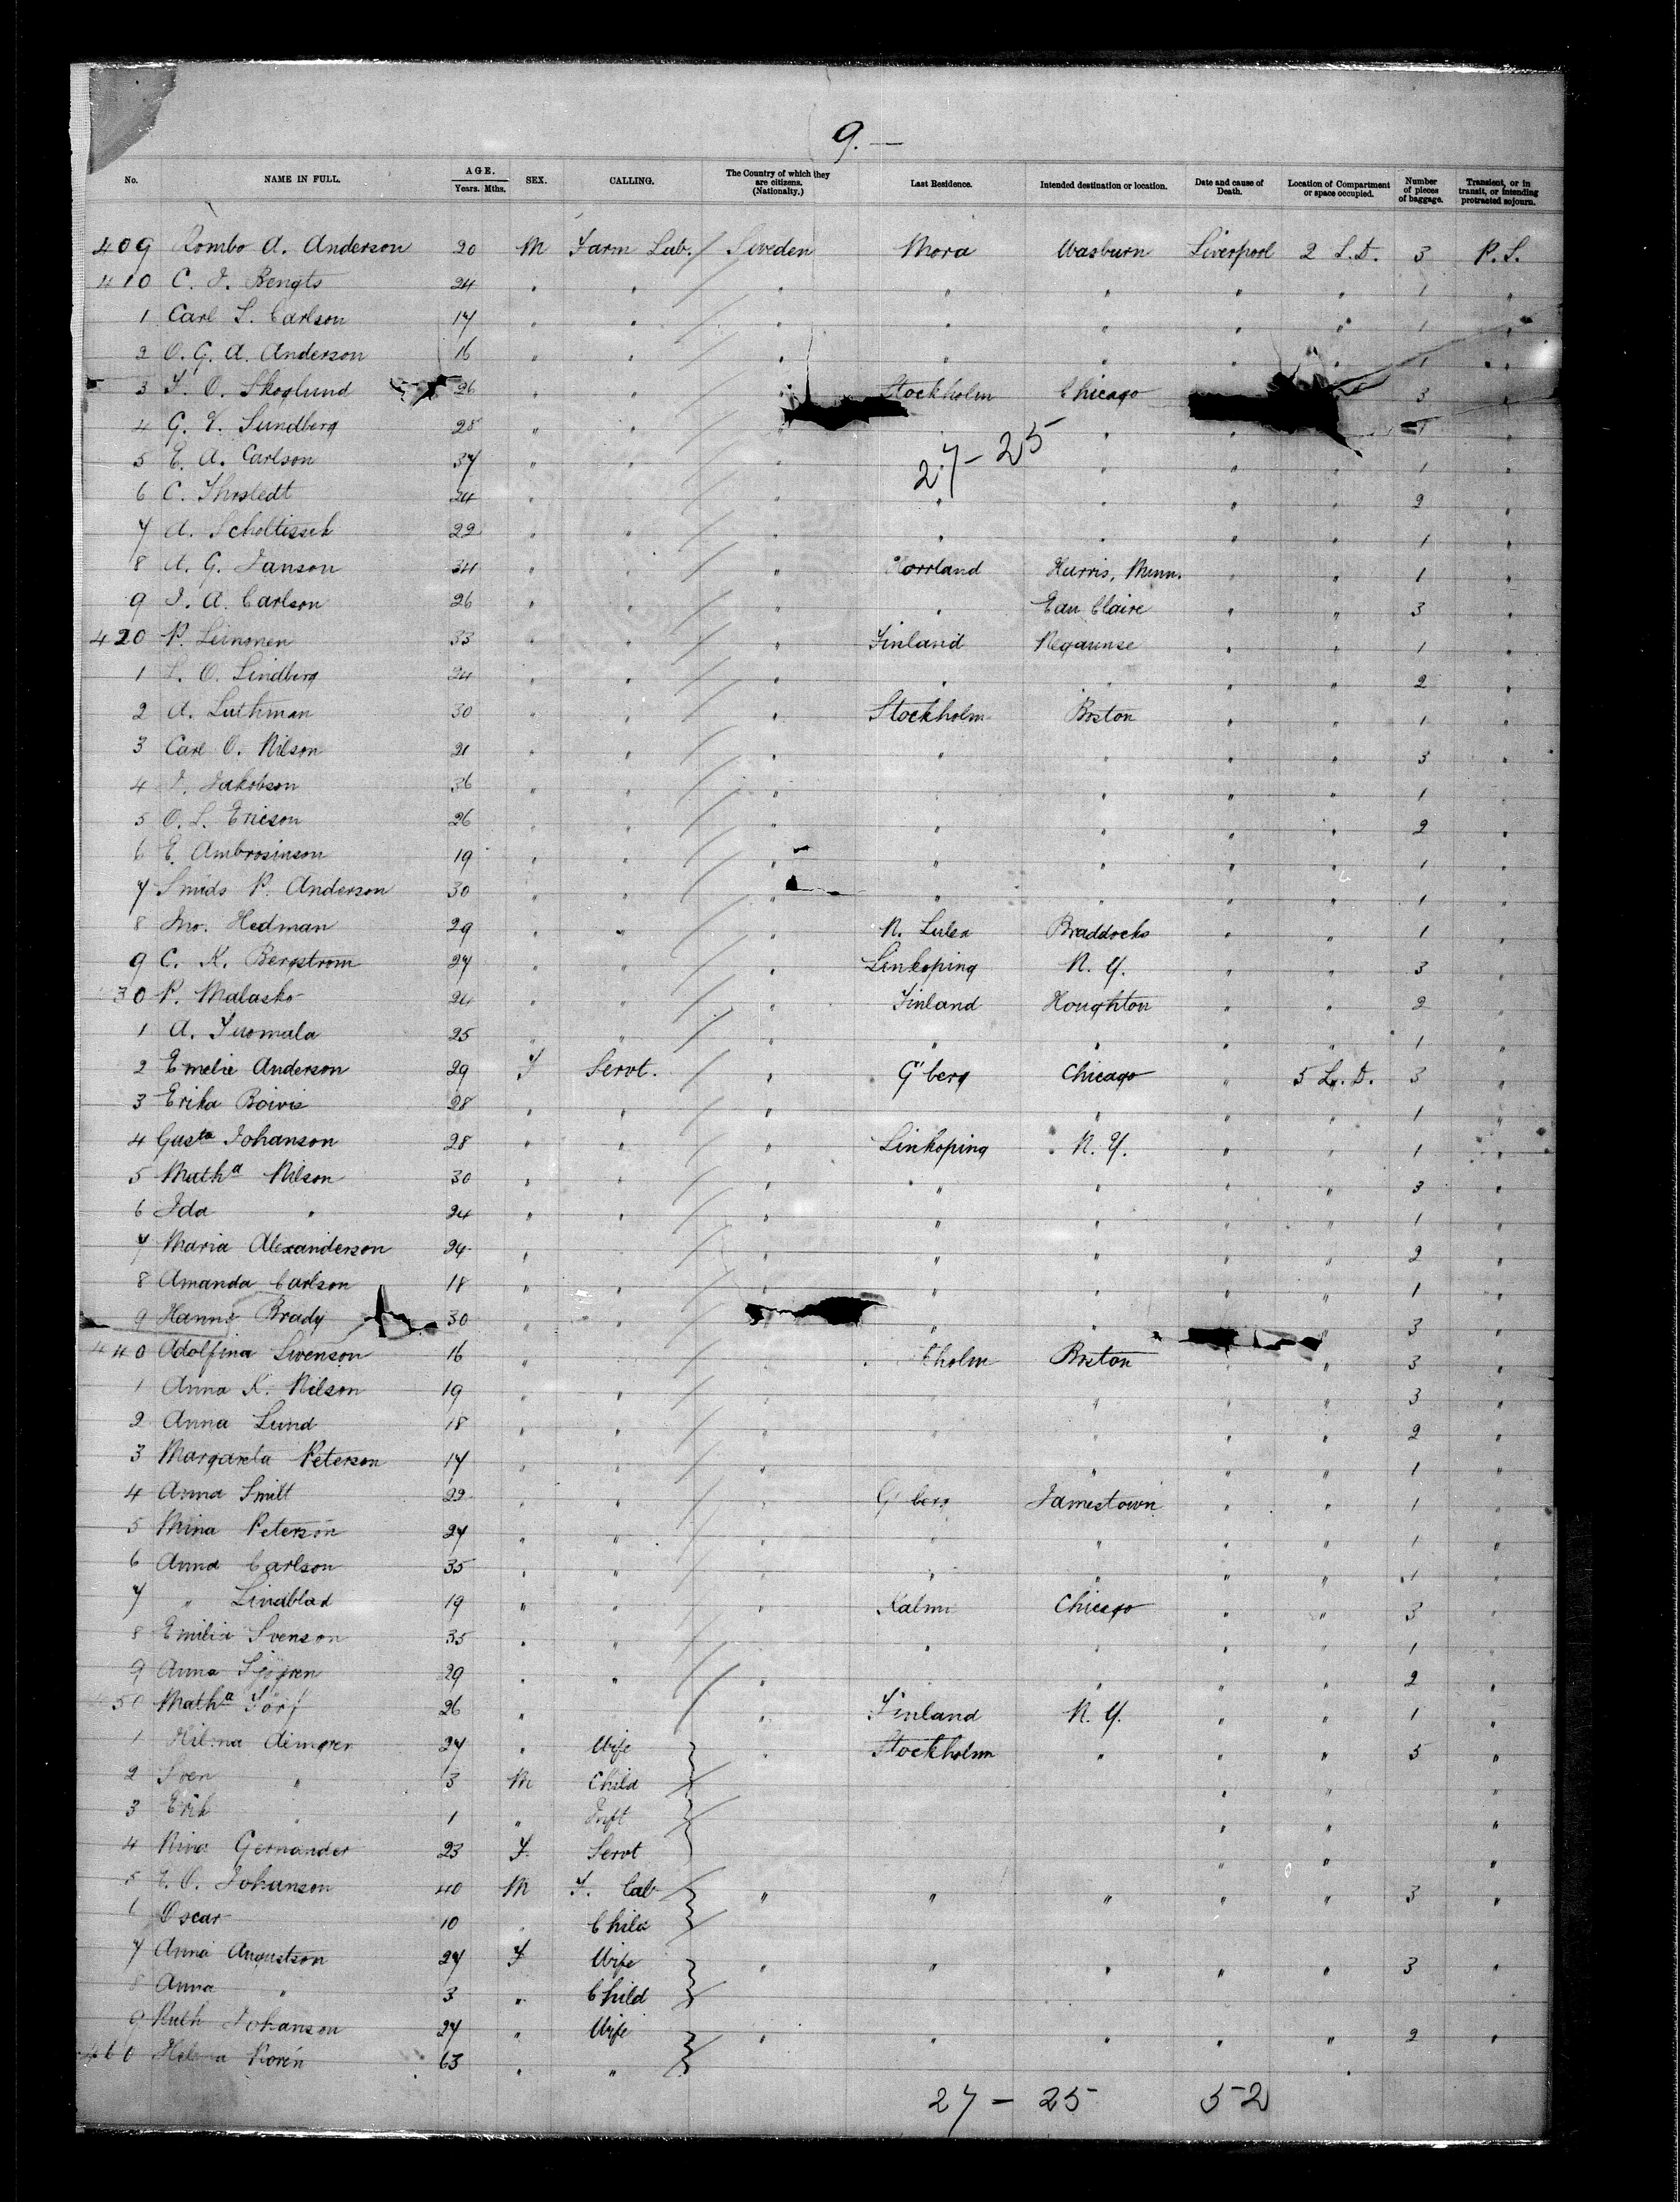 9. —
No. NAME IN FULL. AGE. Years. Mths. SEX. CALLING. The Country of which they are citizens. (Nationalty.) Last Residence. Intended destination or location. Date and cause of Death. Location of Compartment or space occupied. Number of pieces of baggage. Transient, or in transit, or intending protracted sojourn.
409 Rombo A. Anderson 20 M Farm Lab. / Sweden Mora Wasburn Liverpool 2 S.D. 3 P.S.
410 C. J. Bengts 24 " " / " " " " " 1 "
1 Carl S. Carlson 17 " " / " " " " " 1 "
2 O. G. A. Anderson 16 " " / " " " " 1 "
3 F. O. Skoglund 26 " " / " Stockholm Chicago 3 "
4 G. E. Sundberg 28 " " / " " " " 1 "
27 - 25
5 E. A. Carlson 37 " " / " " " " 1 "
6 C. 24 " " / " " " " " 2 "
7 A. Scholtissek 22 " " / " " " " " 1 "
8 A. G. Janson 34 " " / " Norrland Harris, Minn. " " 1 "
9 J. A. Carlson 26 " " / " " Eau Claire " " 3 "
420 P. Leinonen 33 " " / " Finland Negaunse " " 1 "
1 S. O. Lindberg 24 " " / " " " " " 2 "
2 A. Luthman 30 " " / " Stockholm Boston " " 1 "
3 Carl O. Nilson 21 " " / " " " " " 3 "
4 J. Jakobson 36 " " / " " " " 1 "
5 O. L. Ericson 26 " " / " " " " " 2 "
6 E. Ambrosinson 19 " " / " " " " " 1 "
7 Smids P. Anderson 30 " " / " " " " " 1 "
8 Jno. Hedman 29 " " / " N. Lulea Braddocks " " 1 "
9 C. K. Bergstrom 27 " " / " Linkoping N. Y. " " 3 "
30 P. Malasko 24 " " / " Finland Houghton " " 2 "
1 A. Tuomala 25 " " / " " " " " 1 "
2 Emelie Anderson 29 F Servt. / " G'berg Chicago " 5 L. D. 3 "
3 Erika Boivie 28 " " / " " " " " 1 "
4 Gusta Johanson 28 " " / " Linkoping N. Y. " " 1 "
5 Matha Nilson 30 " " / " " " " " 3 "
6 Ida " 24 " " / " " " " " 1 "
7 Maria Alexanderson 24 " / " " " " " 2 "
8 Amanda Carlson 18 " " / " " " " " 1 "
9 Hanne Brady 30 " " / " " " 3 "
440 Adolfina Swenson 16 " / " Cholm Boston " " 3 "
1 Anna K. Nilson 19 " " / " " " " 3 "
2 Anna Lund 18 " " / " " " " " 2 "
3 Margareta Peterson 17 " " / " " " " 1 "
4 Anna Smitt 22 " " / " G'berg Jamestown " " 1 "
5 Mina Peterson 27 " " / " " " " " 1 "
6 Anna Carlson 35 " " / " " " " " 1 "
7 " Lindblad 19 " " " Kalmr Chicago " " 3 "
8 Emilia Svenson 35 " " / " " " " 1
9 Anna Sjögren 29 " " / " " " " 2 "
450 Matha 26 " / " Finland N. Y. " " 1 "
1 Hilma 27 " Wife " Stockholm " " " 5 "
2 Sven " 3 M Child " " "
3 Erik " 1 " Inft " " "
4 Nina Gernander 23 F. Servt " " "
5 Johanson 40 M F. Lab " " " " " 3 "
6 Oscar 10 " Child
7 Anna Augustson 27 F Wife " " " " " 3 "
8 Anna " 3 " Child
9 Ruth Johanson 27 " Wife " " " " " 2 "
460 Korén 63 " "
27 - 25 52